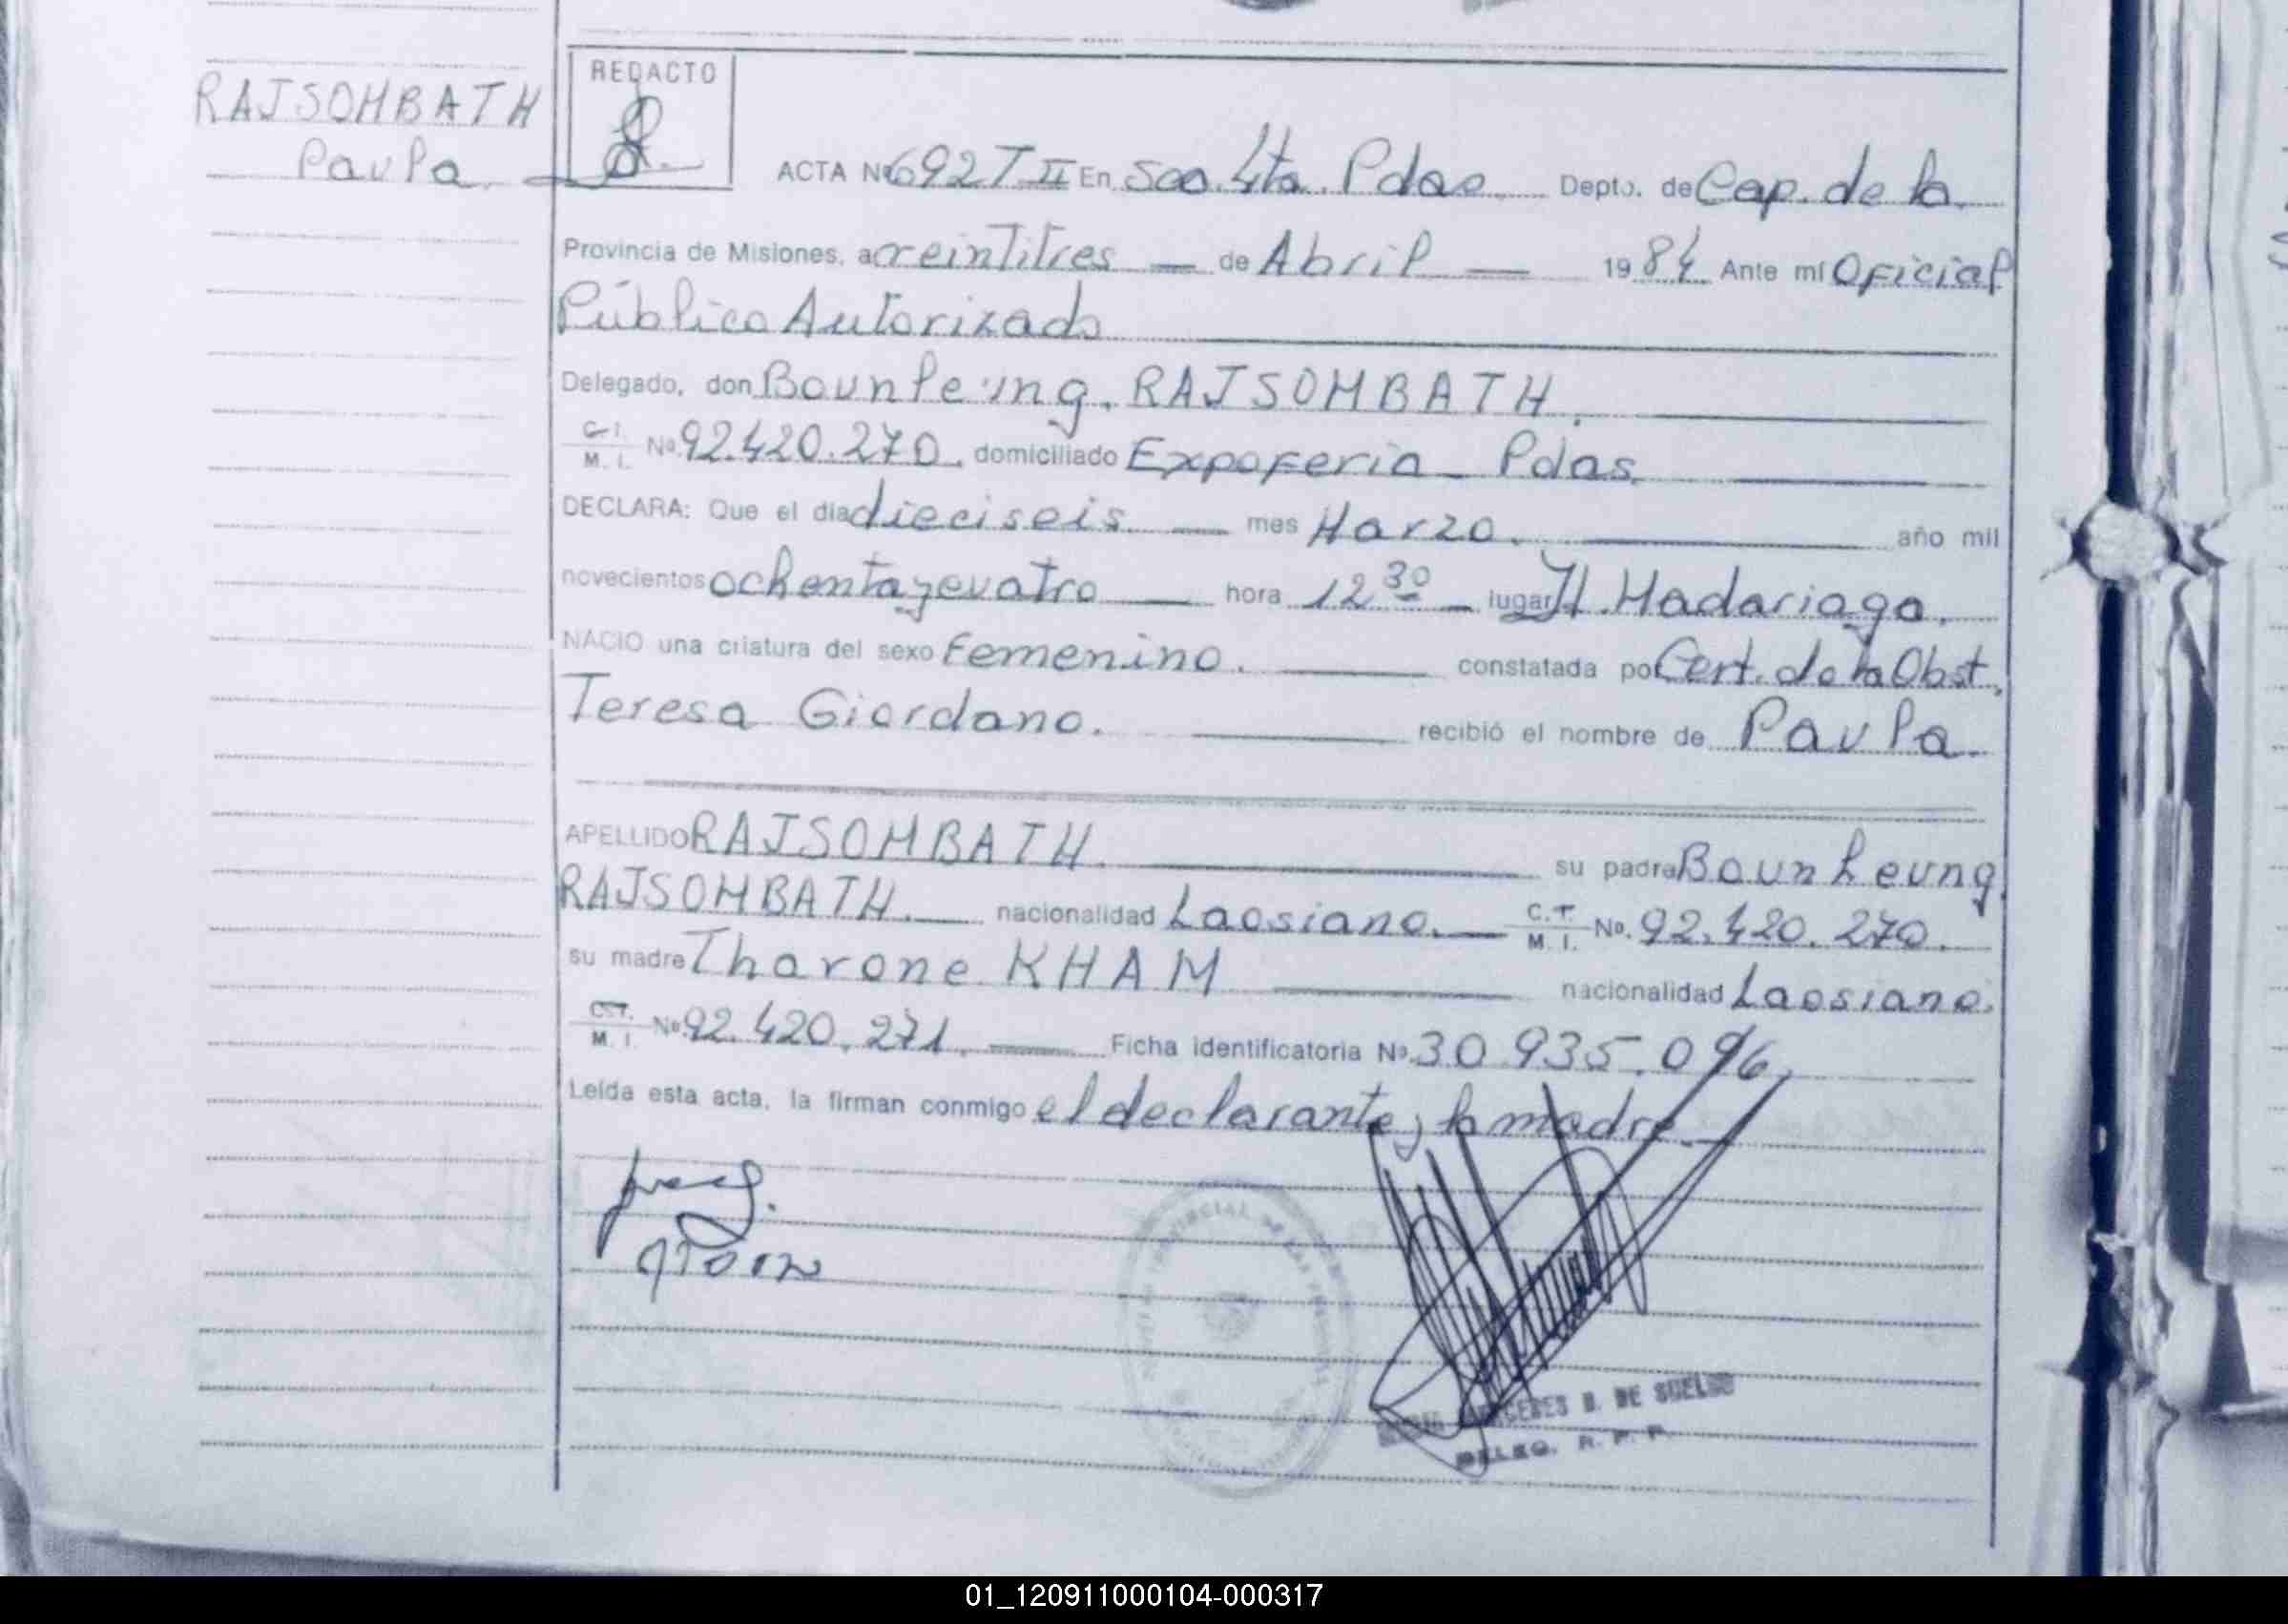 RAJSOMBATH
Paula.
REDACTO
ACTA Nº 692 T II En Scc. 4ta. Pdas. Depto. de Cap. de la
Provincia de Misiones, a veintitres — de Abril — 1984 Ante mí Oficial
Público Autorizado
Delegado, don Bounleung. RAJSOMBATH.
C. I. M. I. Nº 92.420.270. domiciliado Expoferia - Pdas.
DECLARA: Que el día dieciseis. — mes Marzo. año mil
novecientos ochenta y cuatro — hora 12 30 — lugar H. Madariaga.
NACIO una criatura del sexo Femenino. constatada por Cert. de la Obst.
Teresa Giordano. recibió el nombre de Paula.
APELLIDO RAJSOMBATH. su padre Bounleung
RAJSOMBATH. nacionalidad Laosiano. — C.I. M. I. Nº. 92.420.270.
su madre Tharone KHAM nacionalidad Laosiana.
M. I. Nº 92.420.271. — Ficha identificatoria Nº 30.935.096.
Leída esta acta, la firman conmigo el declarante y la madre.
PROVINCIAL DE LAS PERSONAS
MERCEDES B. DE SUELDO
DELEG. R. P. P.
01_120911000104-000317